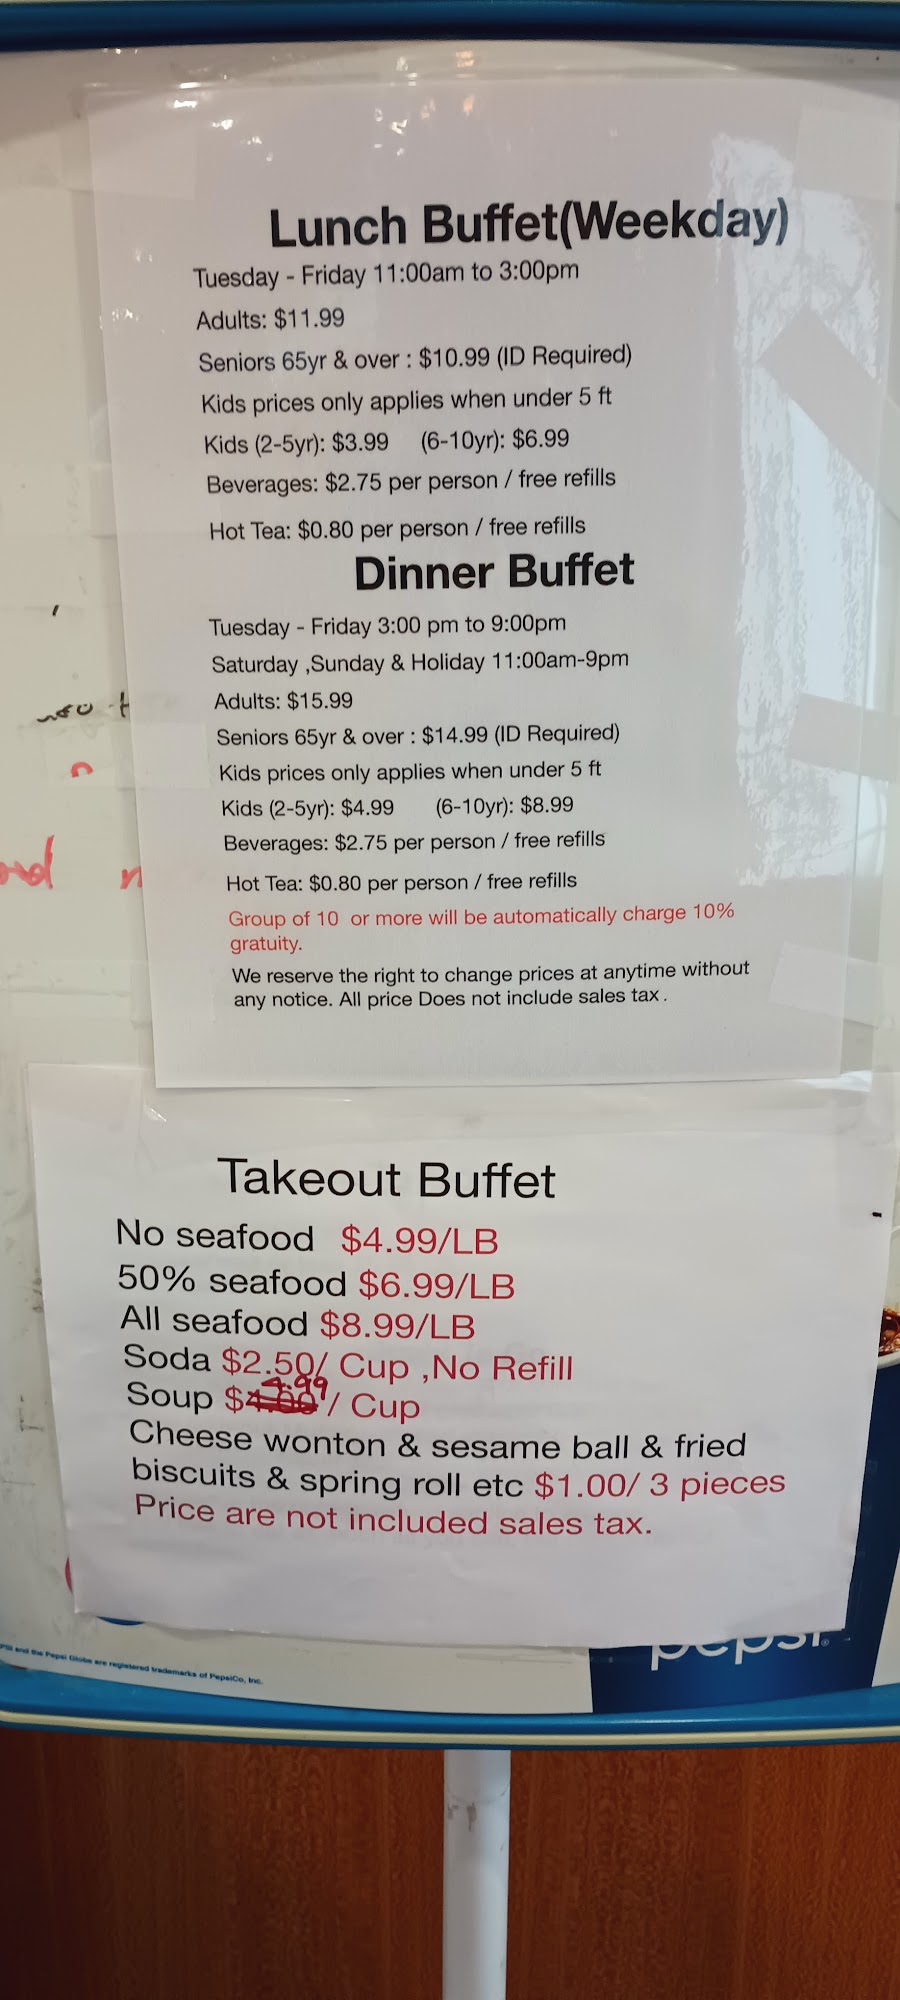 Lunch Buffet(Weekday)
Tuesday - Friday 11:00am to 3:00pm
Adults: $11.99
Seniors 65yr & over : $10.99 (ID Required)
Kids prices only applies when under 5 ft
Kids (2-5yr): $3.99 (6-10yr): $6.99
Beverages: $2.75 per person / free refills
Hot Tea: $0.80 per person / free refills
Dinner Buffet
Tuesday - Friday 3:00 pm to 9:00pm
Saturday ,Sunday & Holiday 11:00am-9pm
Adults: $15.99
Seniors 65yr & over : $14.99 (ID Required)
Kids prices only applies when under 5 ft
Kids (2-5yr): $4.99 (6-10yr): $8.99
Beverages: $2.75 per person / free refills
Hot Tea: $0.80 per person / free refills
Group of 10 or more will be automatically charge 10%
gratuity.
We reserve the right to change prices at anytime without
any notice. All price Does not include sales tax.
Takeout Buffet
No seafood $4.99/LB
50% seafood $6.99/LB
All seafood $8.99/LB
Soda $2.50/ Cup ,No Refill
Soup $4.99/ Cup
Cheese wonton & sesame ball & fried
biscuits & spring roll etc $1.00/ 3 pieces
Price are not included sales tax.
pepsi
and the Pepsi Globe are registered trademarks of PepsiCo, Inc.